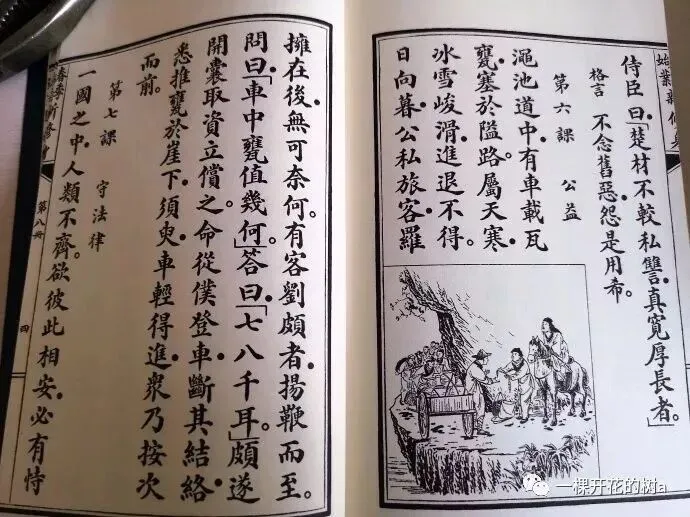 侍臣曰「楚材不較私讐真寬厚長者」
格言　不念舊惡怨是用希。
第六課　公益
澠池道中有車載瓦
甕塞於隘路屬天寒
冰雪峻滑進退不得。
日向暮公私旅客羅
擁在後無可奈何。有客劉頗者揚鞭而至。
問曰「車中甕值幾何」答曰「七八千耳」頗遂
開囊取資立償之命從僕登車斷其結絡
悉推甕於崖下須臾車輕得進衆乃按次
而前。
第七課　守法律
一國之中人類不齊欲彼此相安必有恃
第八冊
四
一棵开花的树a